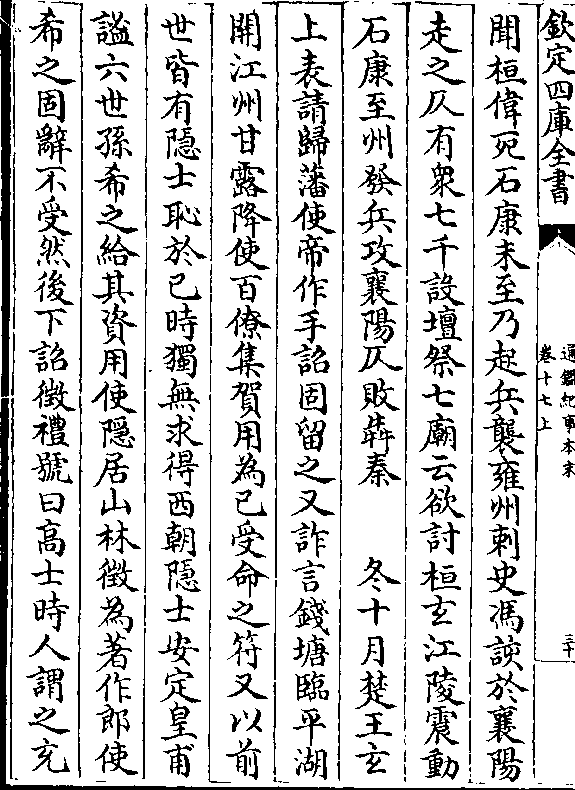 欽定四庫全書
通鑑紀事本末
卷十七上
三十
聞桓偉死石康未至乃起兵襲雍州刺史馮該於襄陽
走之仄有衆七千設壇祭七廟云欲討桓玄江陵震動
石康至州發兵攻襄陽仄敗犇秦　冬十月楚王玄
上表請歸藩使帝作手詔固留之又詐言錢塘臨平湖
開江州甘露降使百僚集賀用為已受命之符又以前
世皆有隱士恥於已時獨無求得西朝隱士安定皇甫
謐六世孫希之給其資用使隱居山林徵為著作郎使
希之固辭不受然後下詔徵禮號曰高士時人謂之充